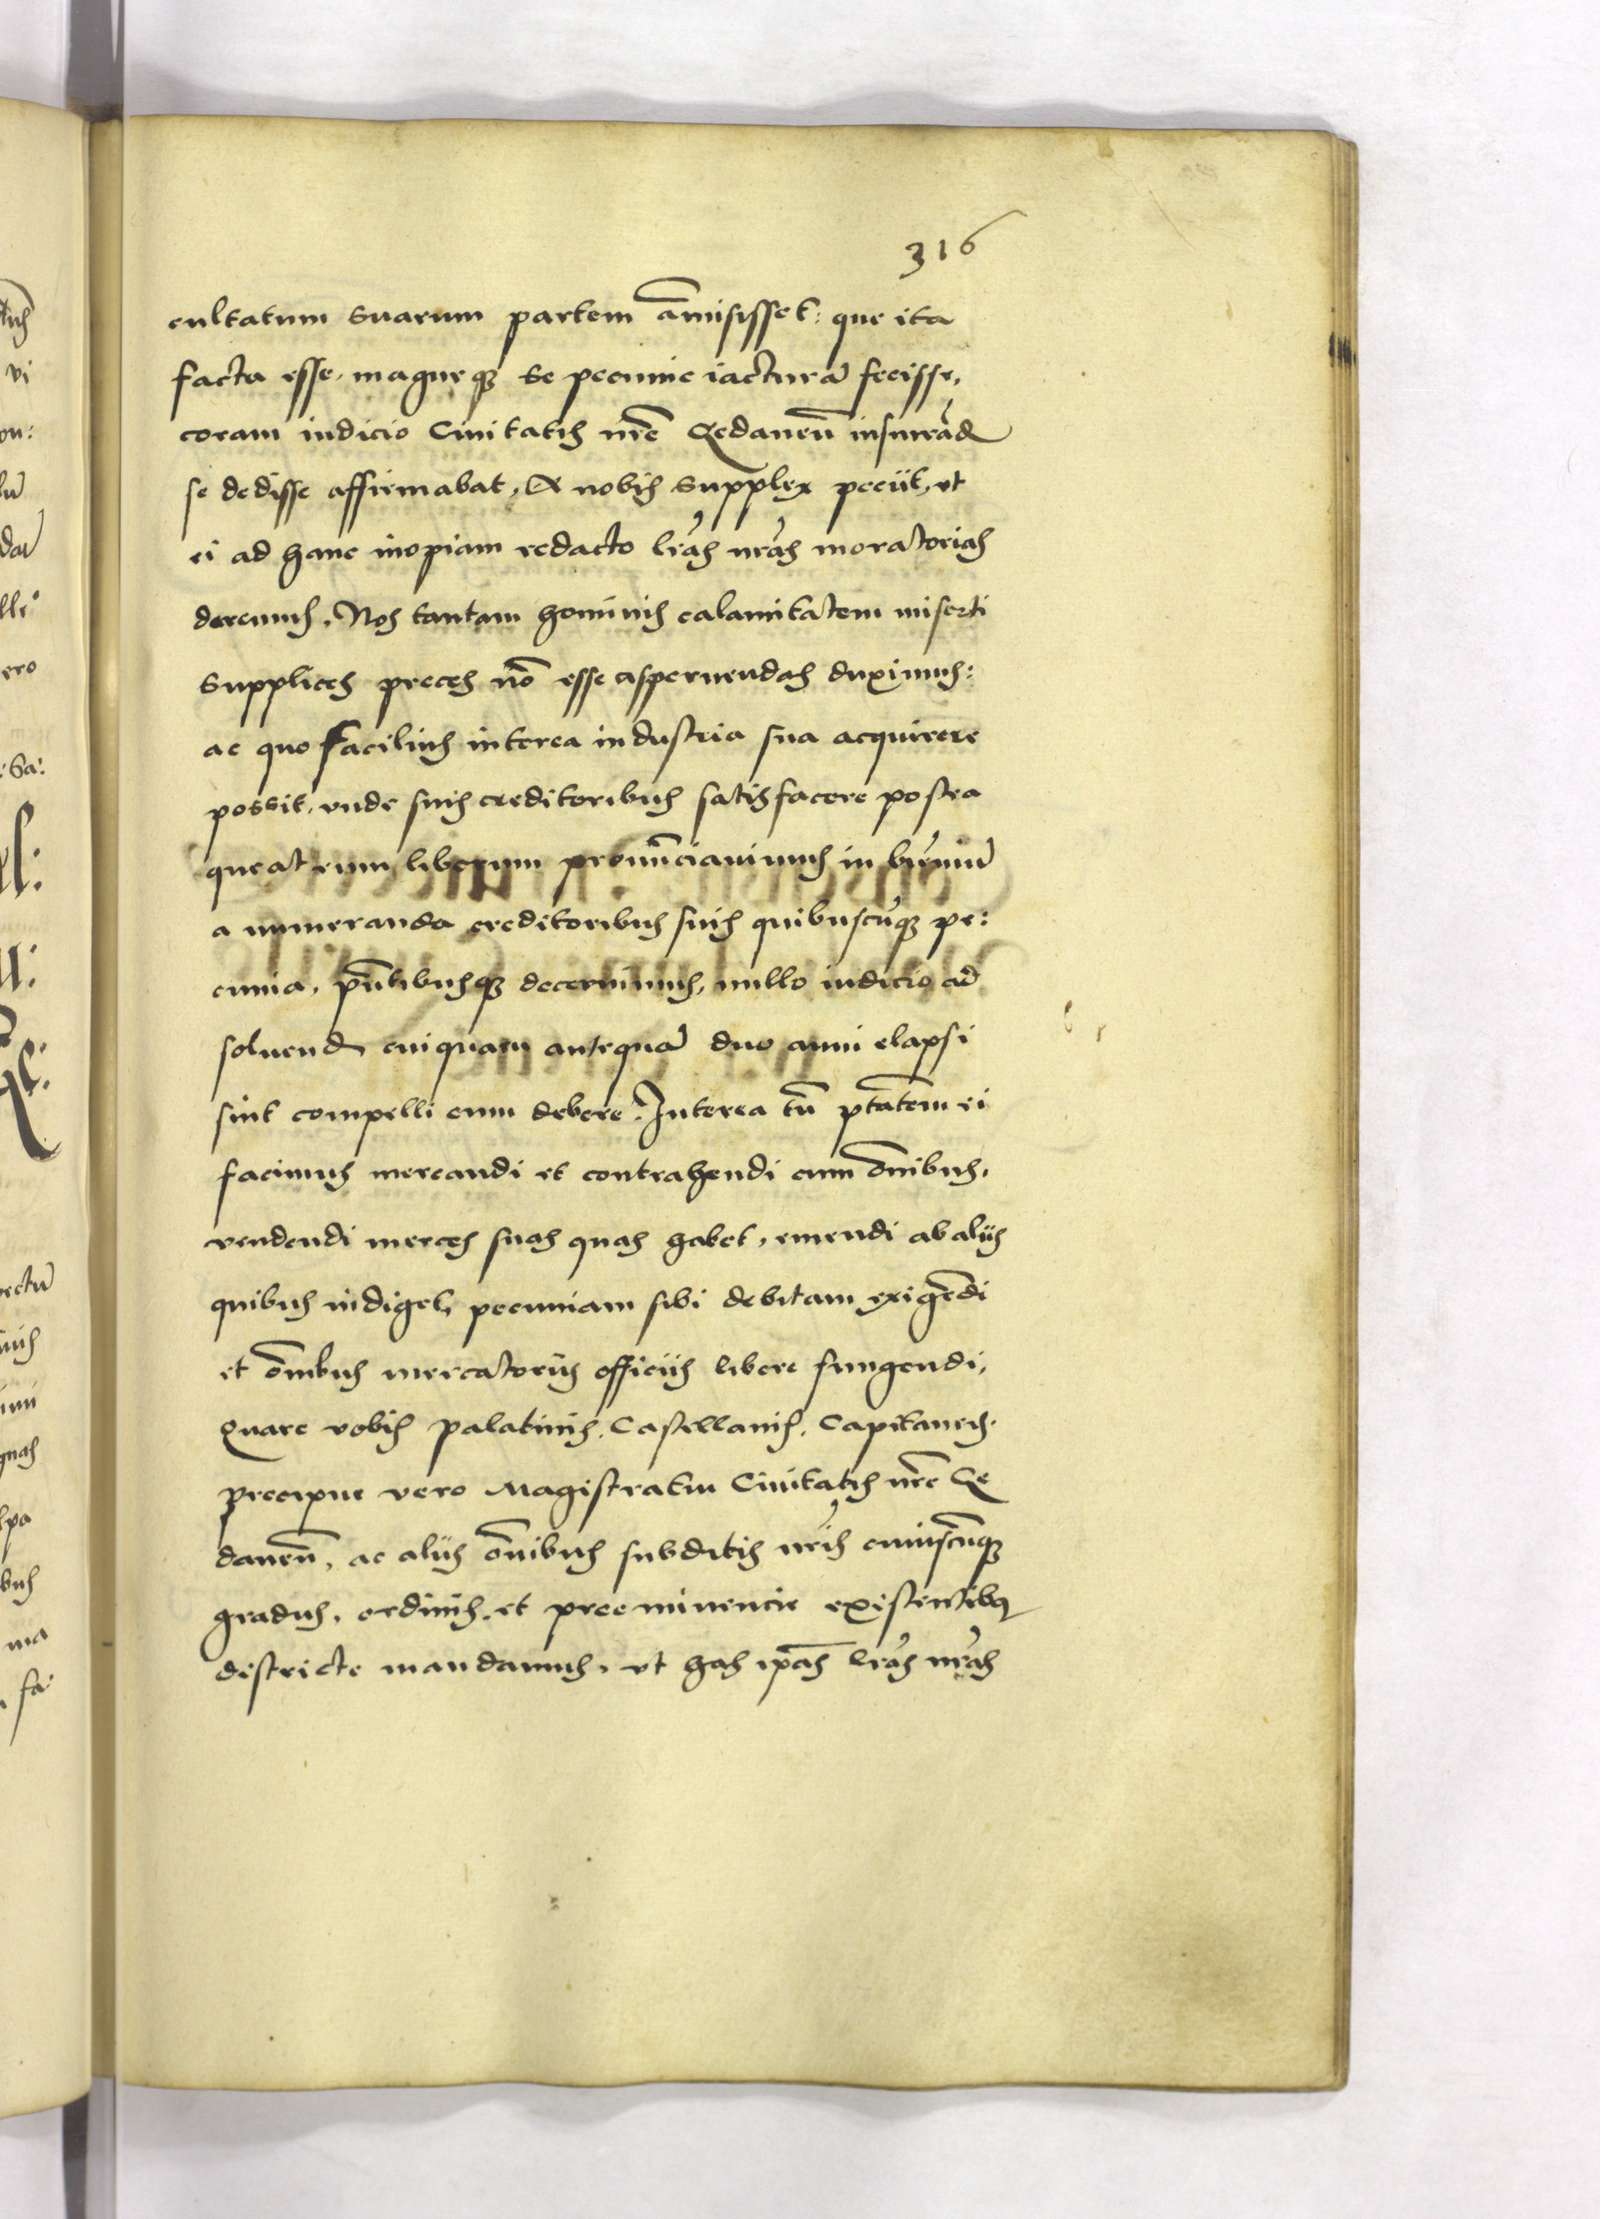 316
cultatum suarum partem ãmisisset: que ita
facta esse, magneq̃ se pecunie iacturã fecisse,
coram iudicio Ciuitatis nr̃e Gedaneñ insinuãd
se dedisse affirmabat, A nobis supplex peciit, vt
ei ad hanc inopiam redacto lr̃as nr̃as moratorias
daremus, Nos tantam hominis calamitatem miserti
supplices preces nõ esse aspernendas duximus:
ac quo facilius interea industria sua acquirere
possit, vnde suis creditoribus satisfacere postea
queat eum liberum pronũciauimus in bienniũ
a numeranda creditoribus suis quibuscũq̃ pe:
cunia, pñtibusq̃ decernimus, nullo iudicio ad
soluend cuiquam antequã duo anni elapsi
sint compelli eum debere. Interea tñ ptãtem ei
facimus mercandi et contrahendi cum õnibus,
vendendi merces suas quas habet, emendi ab aliis
quibus indiget, pecuniam sibi debitam exigẽdi
et õnibus mercatoriis officiis libere fungendi,
Quare vobis palatinis, Castellanis, Capitaneis,
precipue vero Magistratui Ciuitatis nr̃e Ge
daneñ, ac aliis õnibus subditis nr̃is cuiuscũq̃
gradus, ordinis, et preeminencie existentibus
districte mandamus, vt has ip̃as lr̃as nr̃as